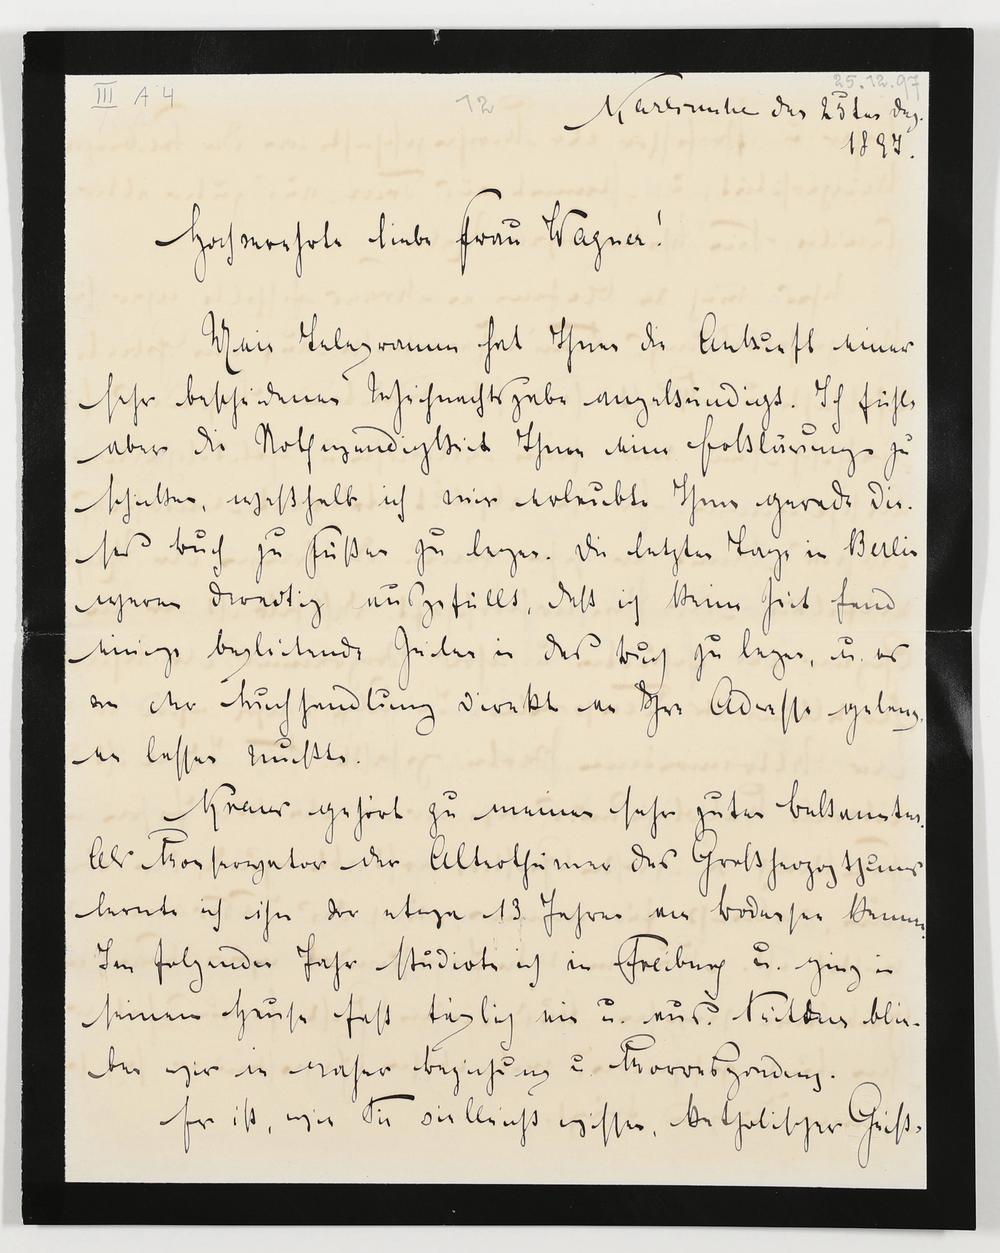 III A 4
12
25.12.97
Karlsruhe den 25ten Dez.
1897.
Hochverehrte liebe Frau Wagner!
Mein Telegramm hat Ihnen die Ankunft einer
sehr bescheidenen Weihnachtsgabe angekündigt. Ich fühle
aber die Nothwendigkeit Ihnen eine Erklärung zu
schulden, weßhalb ich mir erlaubte Ihnen gerade die-
ses Buch zu Füßen zu legen. Die letzten Tage in Berlin
waren derartig ausgefüllt, daß ich keine Zeit fand
einige begleitende Zeilen in das Buch zu legen, u. es
von der Buchhandlung direkt an Ihre Adresse gelang-
en lassen mußte.
Kraus gehört zu meinen sehr guten Bekannten.
Als Konservator der Alterthümer des Großherzogthums
lernte ich ihn vor etwa 13 Jahren am Bodensee kennen.
Im folgenden Jahr studierte ich in Freiburg u. ging in
seinem Hause fast täglich ein u. aus. Seitdem blie-
ben wir in naher Beziehung u. Korrespondenz.
Er ist, wie Sie vielleicht wissen, katholischer Geist-